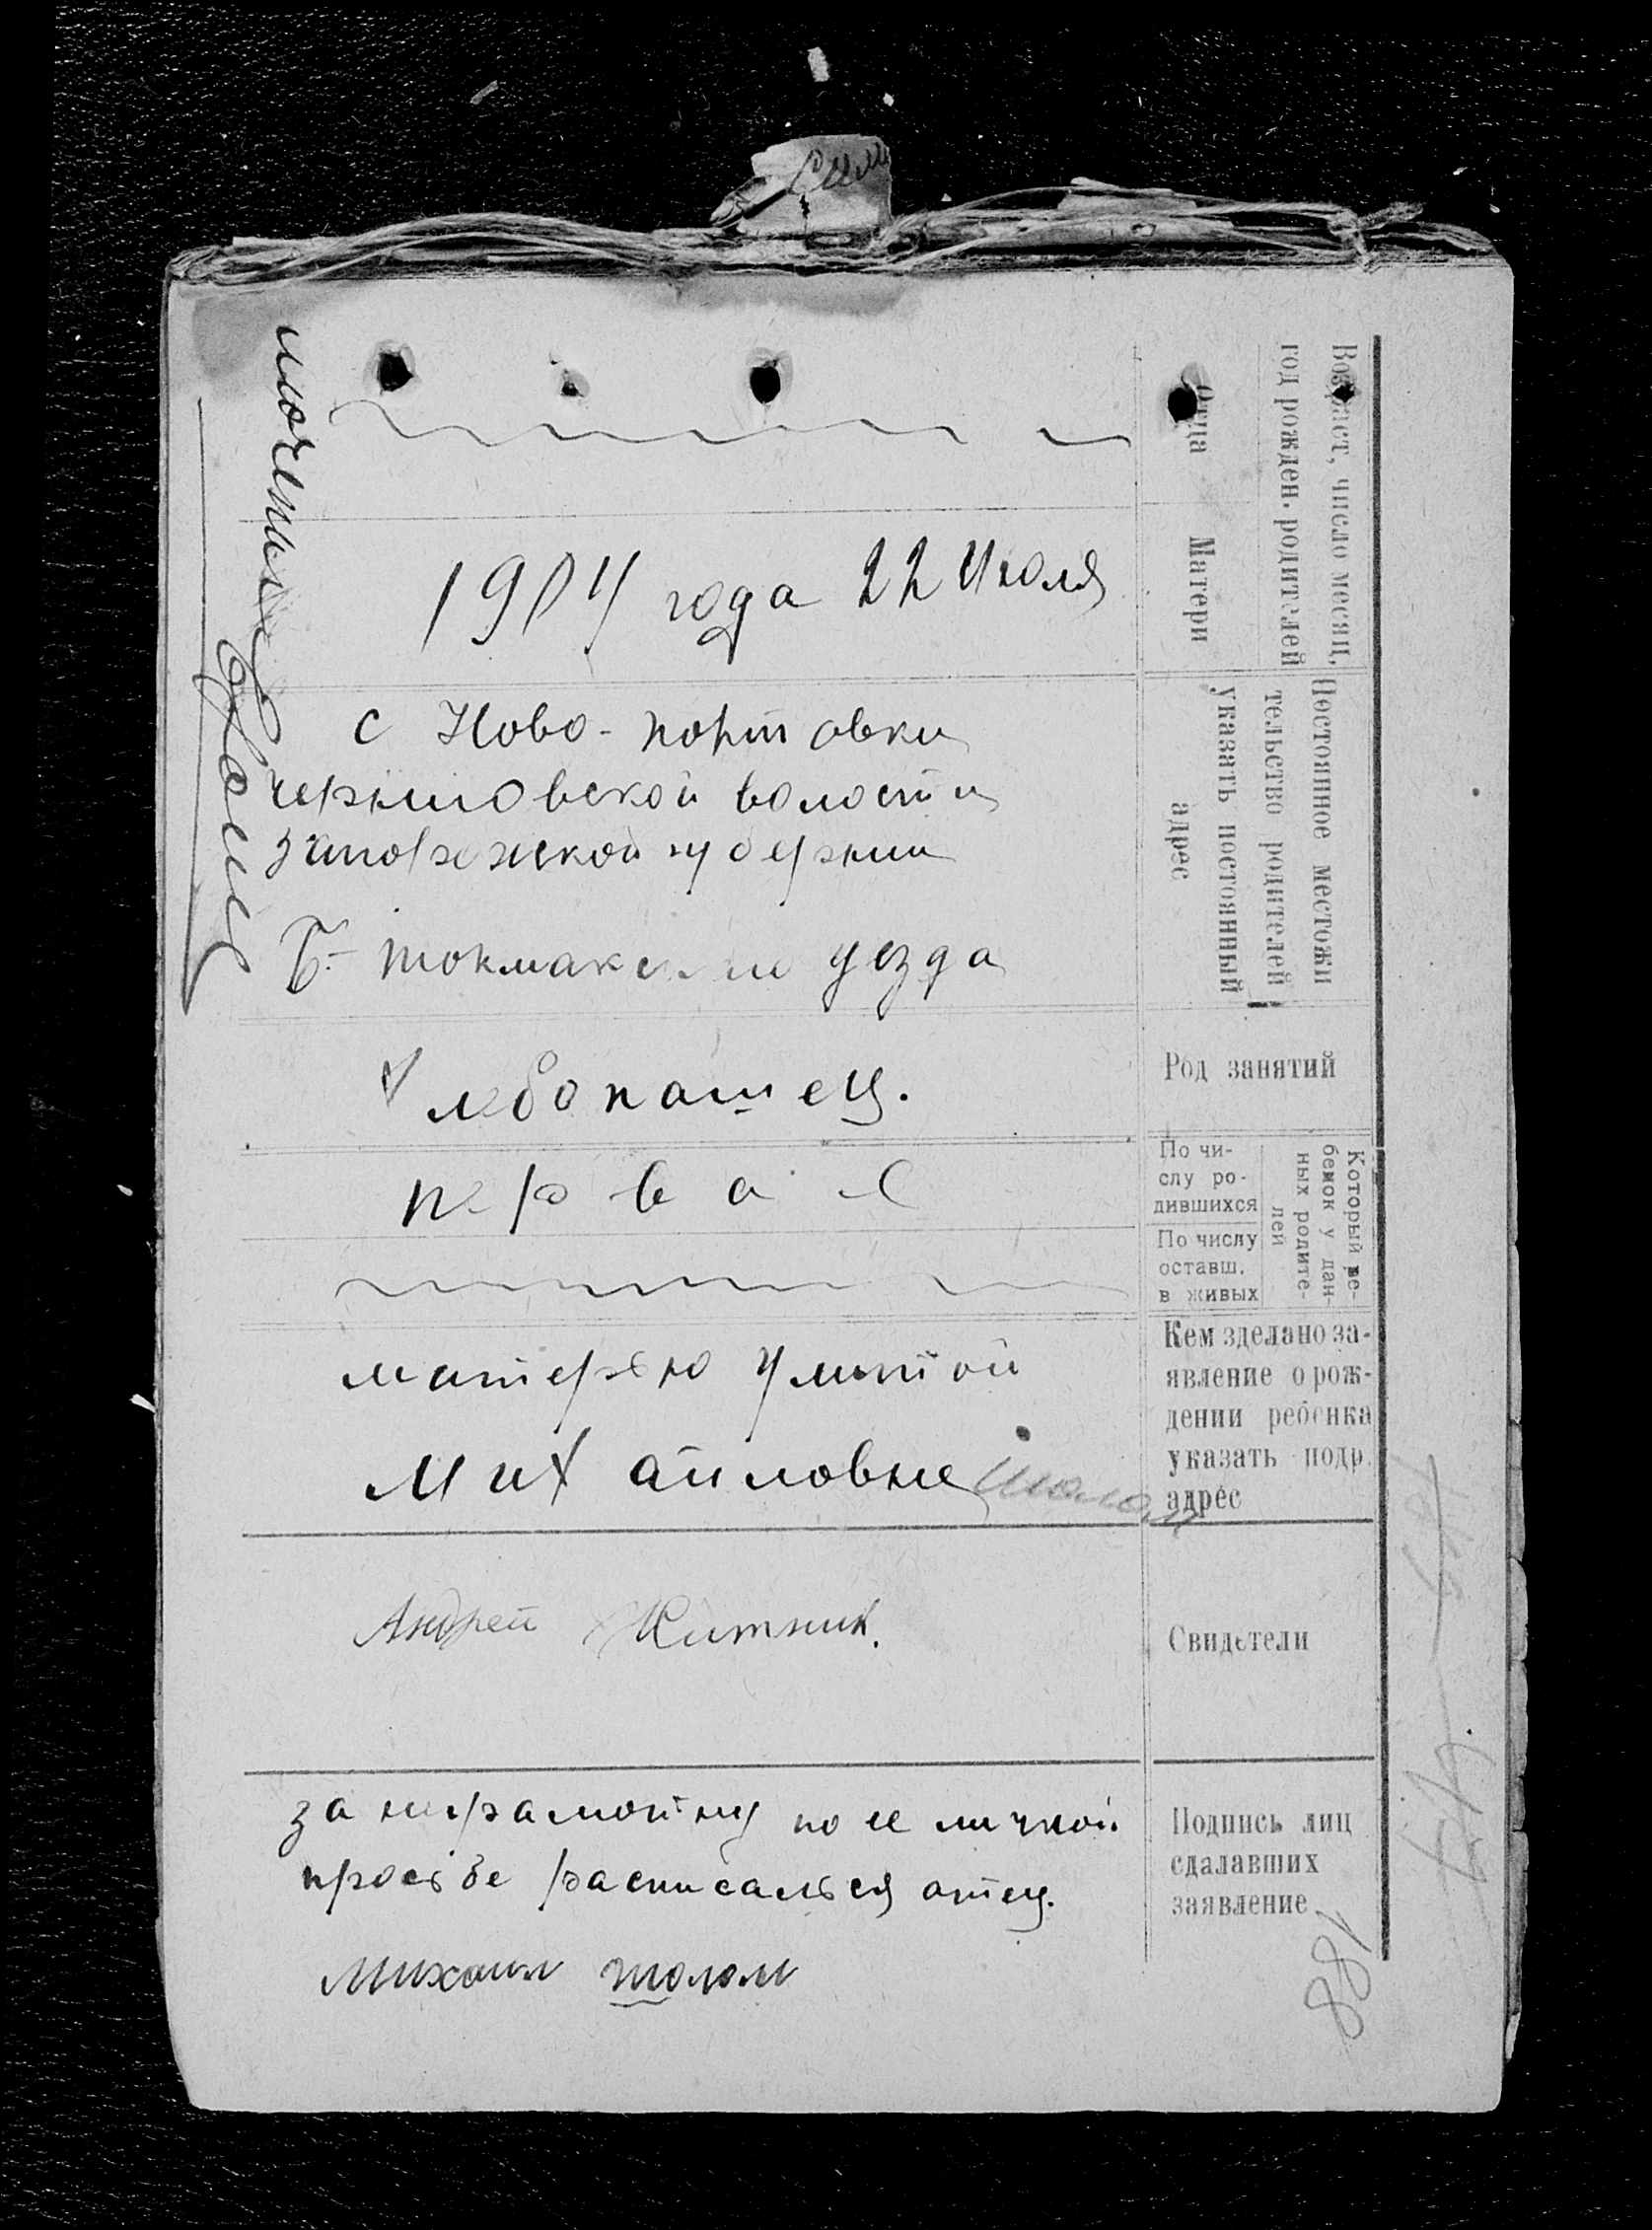 Возраст, число месяц,
год рожден. родителей
Отца
Матери
1904 года 22 Июля
Постоянное местожи
тельство родителей
указать постоянный
адрес
с Ново-полтовки
черниговской волости
запорожской губернии
Б-токмакского уезда
Род занятий
хлебопашец.
Который ре-
бенок у дан-
ных родите-
лей
По чи-
слу ро-
дившихся
первая
По числу
оставш.
в живых
Кем зделано за-
явление о рож-
дении ребенка
указать подр.
адрес
матерью Улитой
Михайловне шолом
Свидетели
Андрей Житник.
Подпись лиц
сдалавших
заявление
за неграмотну по ее личной
просьбе расписалься отец.
Михаил шолом
188